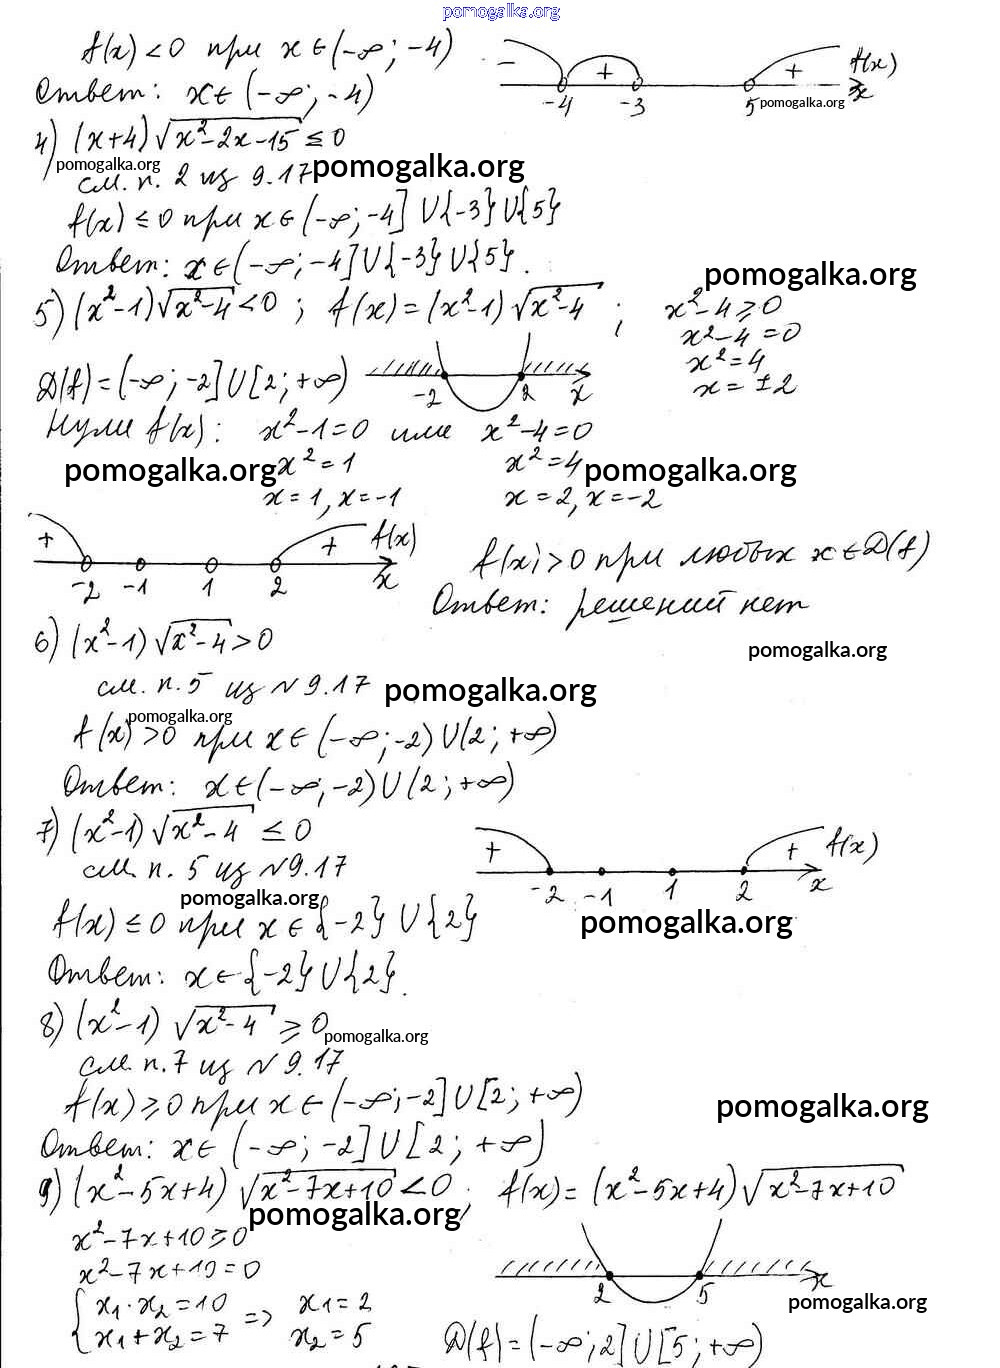 pomogalka.org
f(x) < 0 при x ∈ (-∞; -4)
- + + f(x)
-4 -3 5 x
pomogalka.org
Ответ: x ∈ (-∞; -4)
4) (x+4)√(x²-2x-15) ≤ 0
pomogalka.org
см. п. 2 из 9.17
pomogalka.org
f(x) ≤ 0 при x ∈ (-∞; -4] ∪{-3}∪{5}
Ответ: x ∈ (-∞; -4]∪{-3}∪{5}.
pomogalka.org
5) (x²-1)√(x²-4) < 0 ; f(x) = (x²-1)√(x²-4) ; x²-4 ≥ 0
x²-4 = 0
x² = 4
x = ±2
D(f) = (-∞; -2] ∪ [2; +∞)
-2 2 x
Нули f(x): x²-1=0 или x²-4=0
pomogalka.org x² = 1 x² = 4 pomogalka.org
x = 1, x = -1 x = 2, x = -2
+ + f(x)
-2 -1 1 2 x
f(x) > 0 при любых x ∈ D(f)
Ответ: решений нет
6) (x²-1)√(x²-4) > 0
pomogalka.org
см. п. 5 из №9.17 pomogalka.org
pomogalka.org
f(x) > 0 при x ∈ (-∞; -2) ∪ (2; +∞)
Ответ: x ∈ (-∞; -2) ∪ (2; +∞)
7) (x²-1)√(x²-4) ≤ 0
+ + f(x)
-2 -1 1 2 x
см. п. 5 из №9.17
pomogalka.org
pomogalka.org
f(x) ≤ 0 при x ∈ {-2} ∪ {2}
Ответ: x ∈ {-2} ∪ {2}.
8) (x²-1) √(x²-4) ≥ 0
pomogalka.org
см. п. 7 из №9.17
f(x) ≥ 0 при x ∈ (-∞; -2] ∪ [2; +∞)
pomogalka.org
Ответ: x ∈ (-∞; -2] ∪ [2; +∞)
9) (x²-5x+4) √(x²-7x+10) < 0 ; f(x) = (x²-5x+4)√(x²-7x+10)
pomogalka.org
x²-7x+10 ≥ 0
x²-7x+10 = 0
2 5 x
pomogalka.org
{ x₁·x₂ = 10
x₁+x₂ = 7 => x₁ = 2
x₂ = 5
D(f) = (-∞; 2] ∪ [5; +∞)